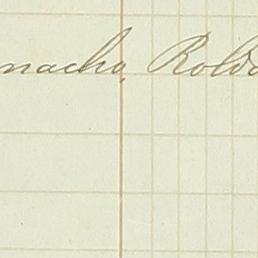 macho, Roldo